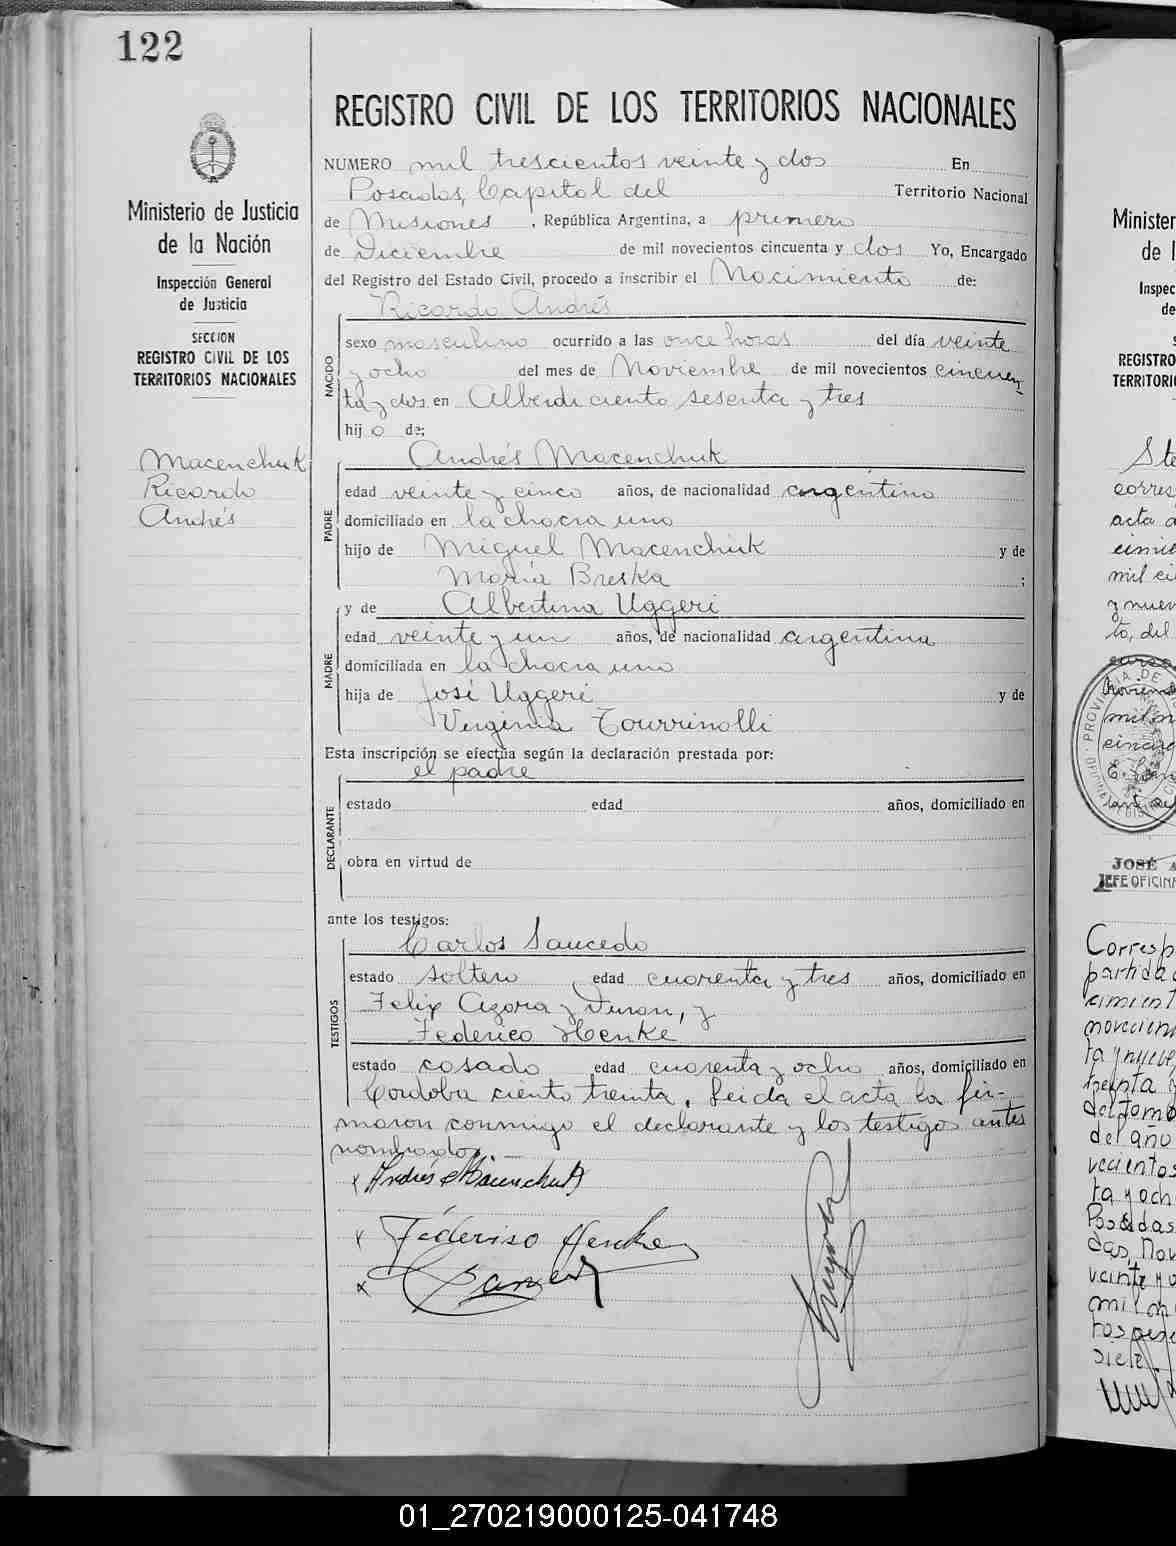 122
REGISTRO CIVIL DE LOS TERRITORIOS NACIONALES
Ministerio de Justicia
de la Nación
Inspección General
de Justicia
SECCION
REGISTRO CIVIL DE LOS
TERRITORIOS NACIONALES
Macenchuk
Ricardo
Andrés
NUMERO mil trescientos veinte y dos En
Posadas, Capital del Territorio Nacional
de Misiones, República Argentina, a primero
de Diciembre de mil novecientos cincuenta y dos Yo, Encargado
del Registro del Estado Civil, procedo a inscribir el Nacimiento de:
Ricardo Andrés
NACIDO
sexo masculino ocurrido a las once horas del día veinte
y ocho del mes de Noviembre de mil novecientos cincuen
ta y dos en Alberdi ciento sesenta y tres
hijo de;
Andrés Macenchuk
PADRE
edad veinte y cinco años, de nacionalidad argentino
domiciliado en la chacra uno
hijo de Miguel Macenchuk y de
María Breska ;
y de Albertina Uggeri
MADRE
edad veinte y un años, de nacionalidad argentina
domiciliada en la chacra uno
hija de José Uggeri y de
Virginia Tourrinolli
Esta inscripción se efectúa según la declaración prestada por:
el padre
DECLARANTE
estado edad años, domiciliado en
obra en virtud de
ante los testigos:
Carlos Saucedo
TESTIGOS
estado soltero edad cuarenta y tres años, domiciliado en
Felix Azara y Duran, y
Federico Henke
estado casado edad cuarenta y ocho años, domiciliado en
Cordoba ciento treinta. Leida el acta la fir-
maron conmigo el declarante y los testigos antes
nombrados
x Andrés Macenchuk
x Federico Henke
x
Minister
de l
Inspec
de
REGISTRO
TERRITORI
Ste
corres
acta
mil ci
y nuev
to, del
PROVINCIA DE
JOSÉ A
JEFE OFICINA
Corresp
partida
cimient
novecien
ta y nueve,
treinta
del Tomo
del año
vecientos
ta y och
Posadas
das, Nov
veinte y
mil n
siete
01_270219000125-041748